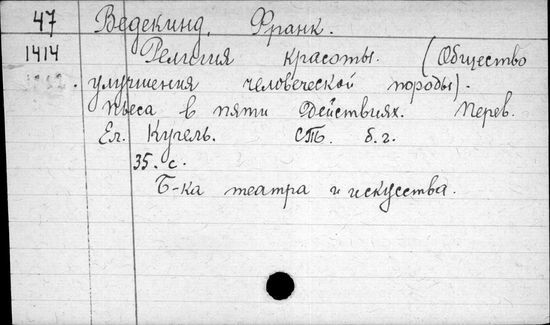 47 Ведекинд, Франк.
1414 Религия красоты. (Общество
улучшения человеческой породы).
Пьеса в пяти действиях. Перев.
Ел. Кугель. СПб. б.г.
35. с.
Б-ка театра и искусства.